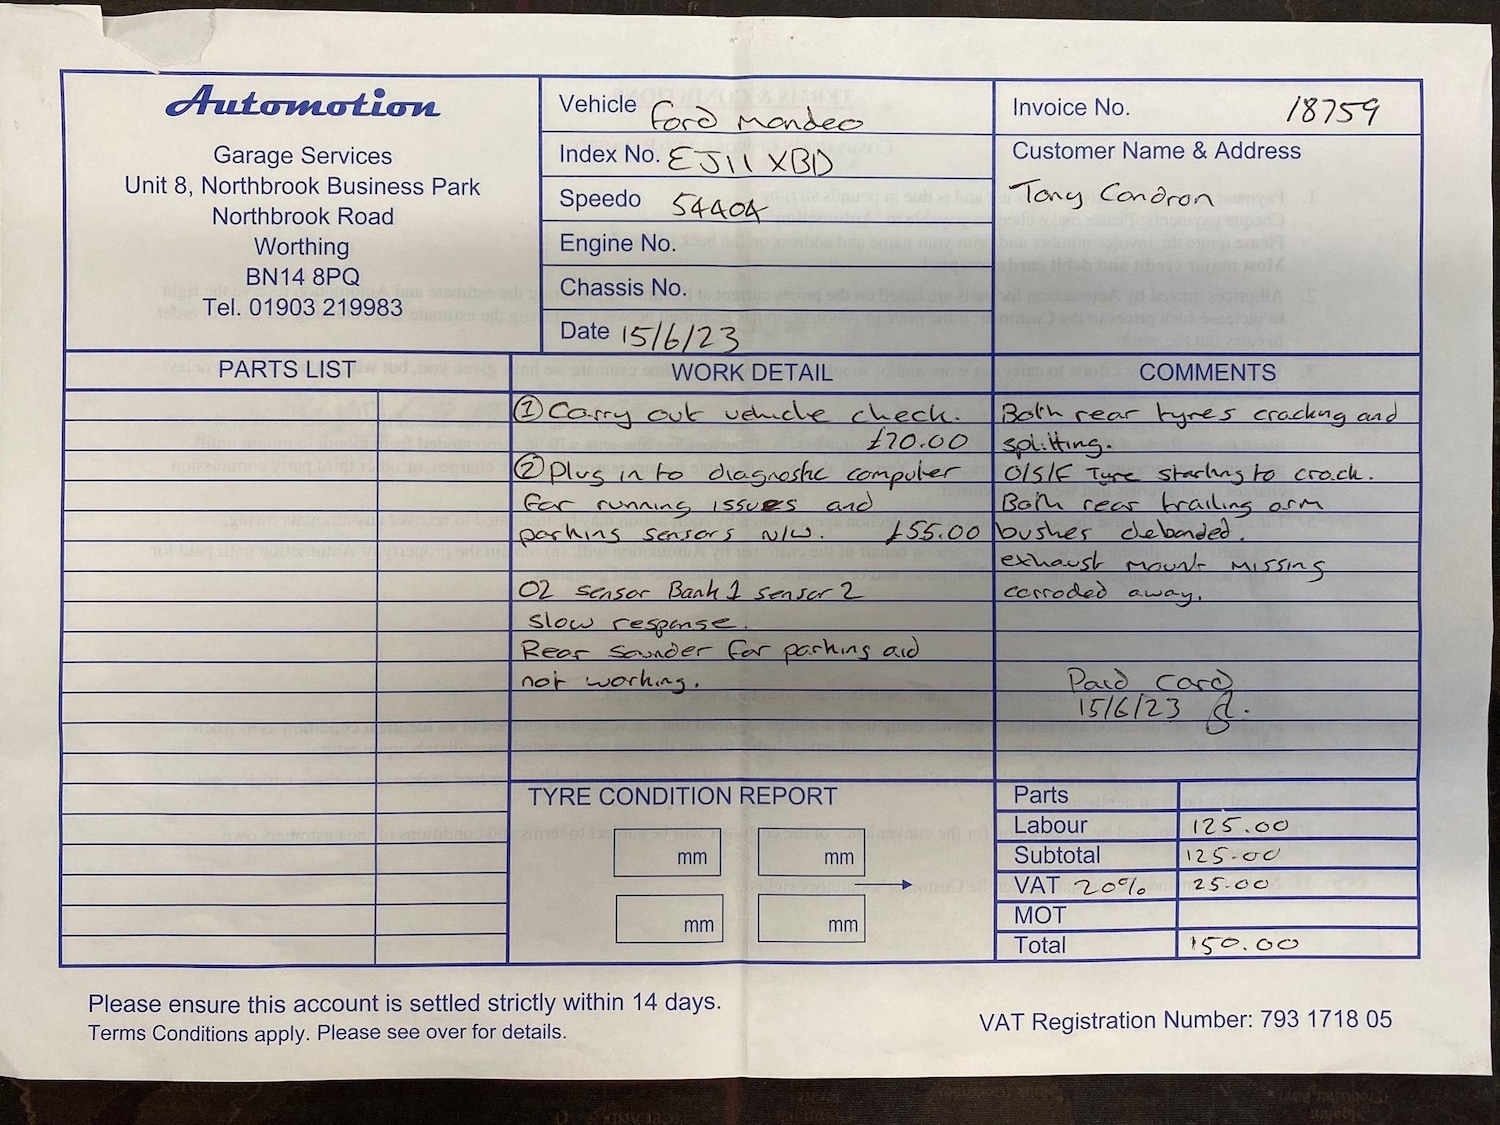 Automotion
Garage Services
Unit 8, Northbrook Business Park
Northbrook Road
Worthing
BN14 8PQ
Tel. 01903 219983
Vehicle Ford Mondeo
Index No. EJ11 XBD
Speedo 54404
Engine No.
Chassis No.
Date 15/6/23
Invoice No. 18759
Customer Name & Address
Tony Condron
PARTS LIST
WORK DETAIL
① Carry out vehicle check.
£70.00
② Plug in to diagnostic computer
for running issues and
parking sensors N/W. £55.00
O2 sensor Bank 1 sensor 2
slow response.
Rear sounder for parking aid
not working.
COMMENTS
Both rear tyres cracking and
splitting.
O/S/F Tyre starting to crack.
Both rear trailing arm
bushes debonded.
exhaust mount missing
corroded away.
Paid Card
15/6/23
TYRE CONDITION REPORT
mm mm
mm mm
Parts
Labour 125.00
Subtotal 125.00
VAT 20% 25.00
MOT
Total 150.00
Please ensure this account is settled strictly within 14 days.
Terms Conditions apply. Please see over for details.
VAT Registration Number: 793 1718 05